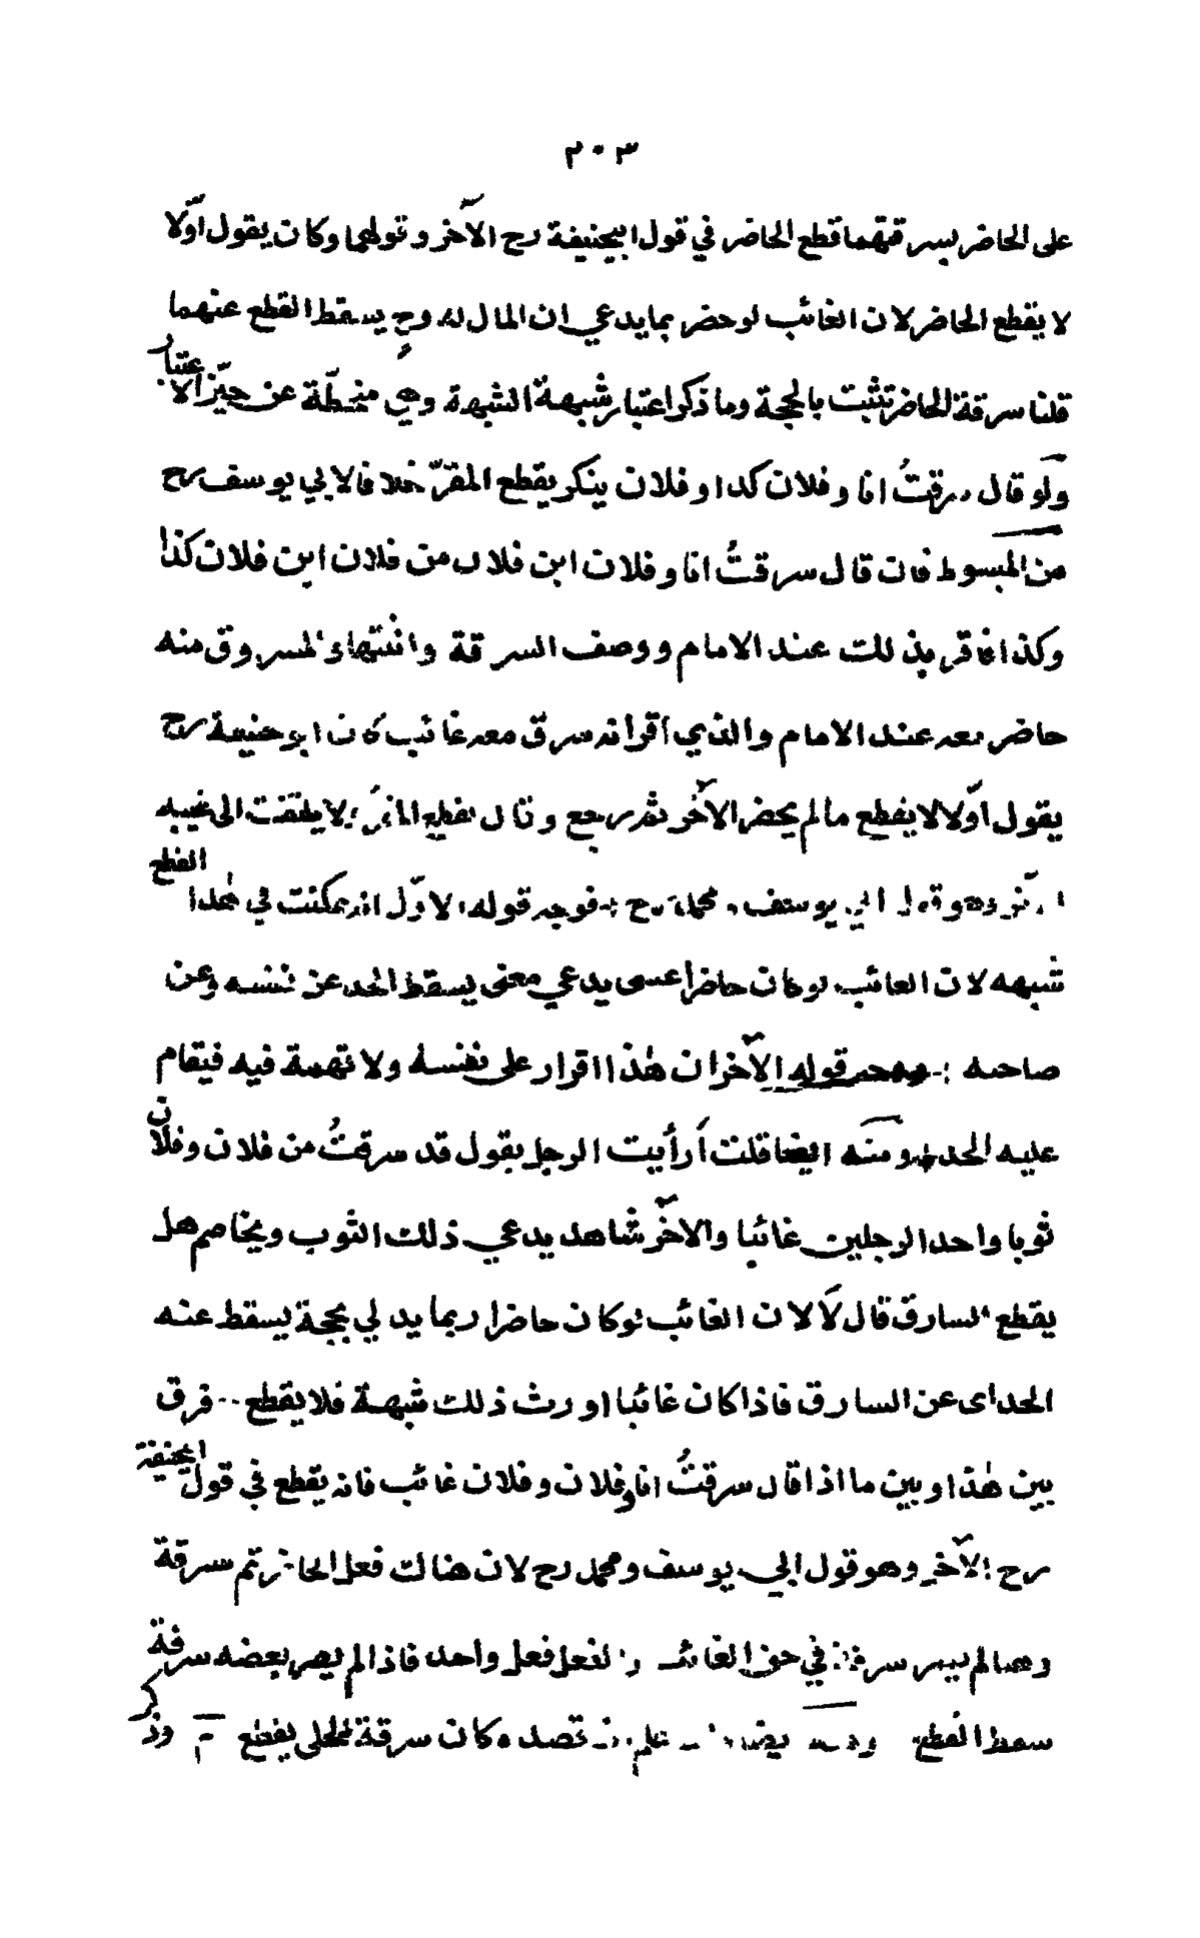 ٢٠٣
على الحاضر بسرقتهما قطع الحاضر في قول ابيحنيفة رح الآخر و قولهما وكان يقول اوّلا
لا يقطع الحاضر لان الغائب لو حضر بما يدعي ان المال له وح يسقط القطع عنهما
قلنا سرقة الحاضر تثبت بالحجة وما ذكر اعتبار شبهة الشبهة وهي منحطّة عن حيّز الاعتبار
ولو قال سرقتُ انا وفلان كدا وفلان ينكر يقطع المقرّ خلافا لابي يوسف رح
من المبسوط فان قال سرقتُ انا وفلان ابن فلان من فلان ابن فلان كذا
وكذا فاقر بذلك عند الامام ووصف السرقة وانتهاء المسروق منه
حاضر معه عند الامام والذي اقر انه سرق معه غائب كان ابو حنيفة رح
يقول اوّلا لا يقطع مالم يحضر الآخر ثم رجع وقال يقطع المقرّ ولا يلتفت الى غيبه
الآخر وهو قول ابي يوسف ومحمد رح فوجه قوله الاوّل انه تمكنت في هذا القطع
شبهه لان الغائب لو كان حاضرا عسى يدعي معنى يسقط الحد عن نفسه وعن
صاحبه وجه قوله الآخر ان هٰذا اقرار على نفسه ولا تهمة فيه فيقام
عليه الحد ومنه ايضا قلت أرأيت الرجل يقول قد سرقتُ من فلان وفلان
ثوبا واحد الرجلين غائبا والآخر شاهد يدعي ذلك الثوب ويخاصم هل
يقطع السارق قال لَا لان الغائب لو كان حاضرا ربما يدلي بحجة يسقط عنه
الحد اى عن السارق فاذا كان غائبا اورث ذلك شبهة فلا يقطع فرق
بين هٰذا وبين ما اذا قال سرقتُ انا وفلان وفلان غائب فانه يقطع في قول ابيحنيفة
رح الآخر وهو قول ابي يوسف ومحمد رح لان هنالك فعل الحاضر تم سرقة
وهٰهنا لم يصر سرقة في حق الغائب والفعل فعل واحد فاذا لم يصر بعضه سرقة
سقط القطع ومنه ايضا قصده كان سرقة الحلى يقطع م وذكر